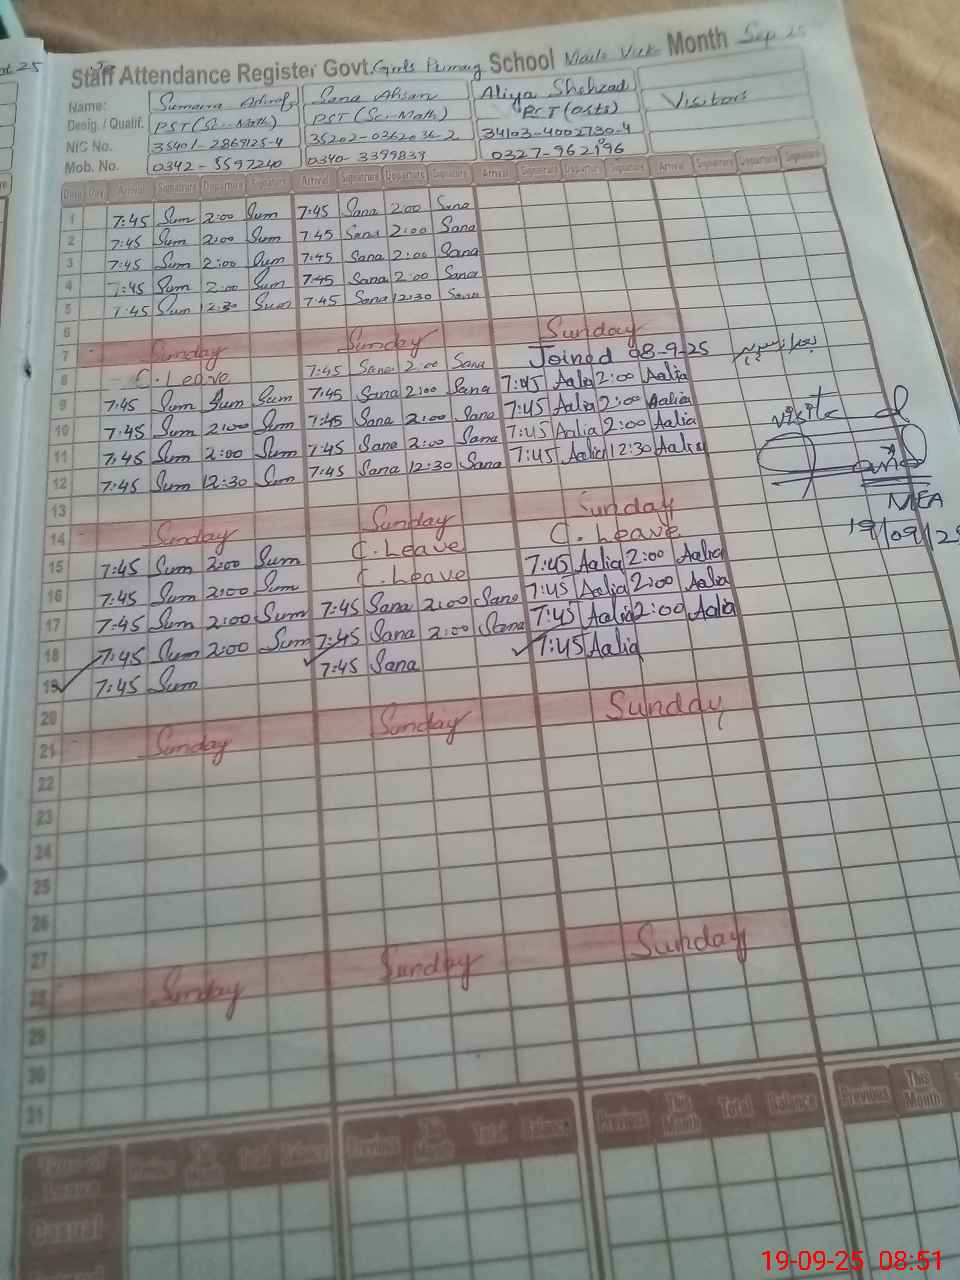 Staff Attendance Register Govt. Girls Primary School Month Sep 25
Name: Sumaira Sana Ahsan Aliya Shehzad
Desig. / Qualif. PST (Sc-Math) PST (Sc-Math) PST (Arts) Visitors
NIC No. 35401-2869125-4 35202-0362036-2 34103-4002730-4
Mob. No. 0342-5597240 0340-3399839 0327-962196
Date Day Arrival Signature Departure Signature Arrival Signature Departure Signature Arrival Signature Departure Signature Arrival Signature Departure Signature
1 7:45 Sum 2:00 Sum 7:45 Sana 2:00 Sana
2 7:45 Sum 2:00 Sum 7:45 Sana 2:00 Sana
3 7:45 Sum 2:00 Sum 7:45 Sana 2:00 Sana
4 7:45 Sum 2:00 Sum 7:45 Sana 2:00 Sana
5 7:45 Sum 12:30 Sum 7:45 Sana 12:30 Sana
6
7 Sunday Sunday Sunday
8 C. Leave 7:45 Sana 2:00 Sana Joined 08-9-25
9 7:45 Sum Sum Sum 7:45 Sana 2:00 Sana 7:45 Aalia 2:00 Aalia
10 7:45 Sum 2:00 Sum 7:45 Sana 2:00 Sana 7:45 Aalia 2:00 Aalia
11 7:45 Sum 2:00 Sum 7:45 Sana 2:00 Sana 7:45 Aalia 2:00 Aalia
12 7:45 Sum 12:30 Sum 7:45 Sana 12:30 Sana 7:45 Aalia 12:30 Aalia
visited
MEA
19/09/25
13
14 Sunday Sunday Sunday
15 7:45 Sum 2:00 Sum C. Leave C. Leave
16 7:45 Sum 2:00 Sum C. Leave 7:45 Aalia 2:00 Aalia
17 7:45 Sum 2:00 Sum 7:45 Sana 2:00 Sana 7:45 Aalia 2:00 Aalia
18 7:45 Sum 2:00 Sum 7:45 Sana 2:00 Sana 7:45 Aalia 2:00 Aalia
19 7:45 Sum 7:45 Sana 7:45 Aalia
20
21 Sunday Sunday Sunday
22
23
24
25
26
27
28 Sunday Sunday Sunday
29
30
31
Type of Leave Previous This Month Total Balance Previous This Month Total Balance Previous This Month Total Balance Previous This Month
Casual
19-09-25 08:51